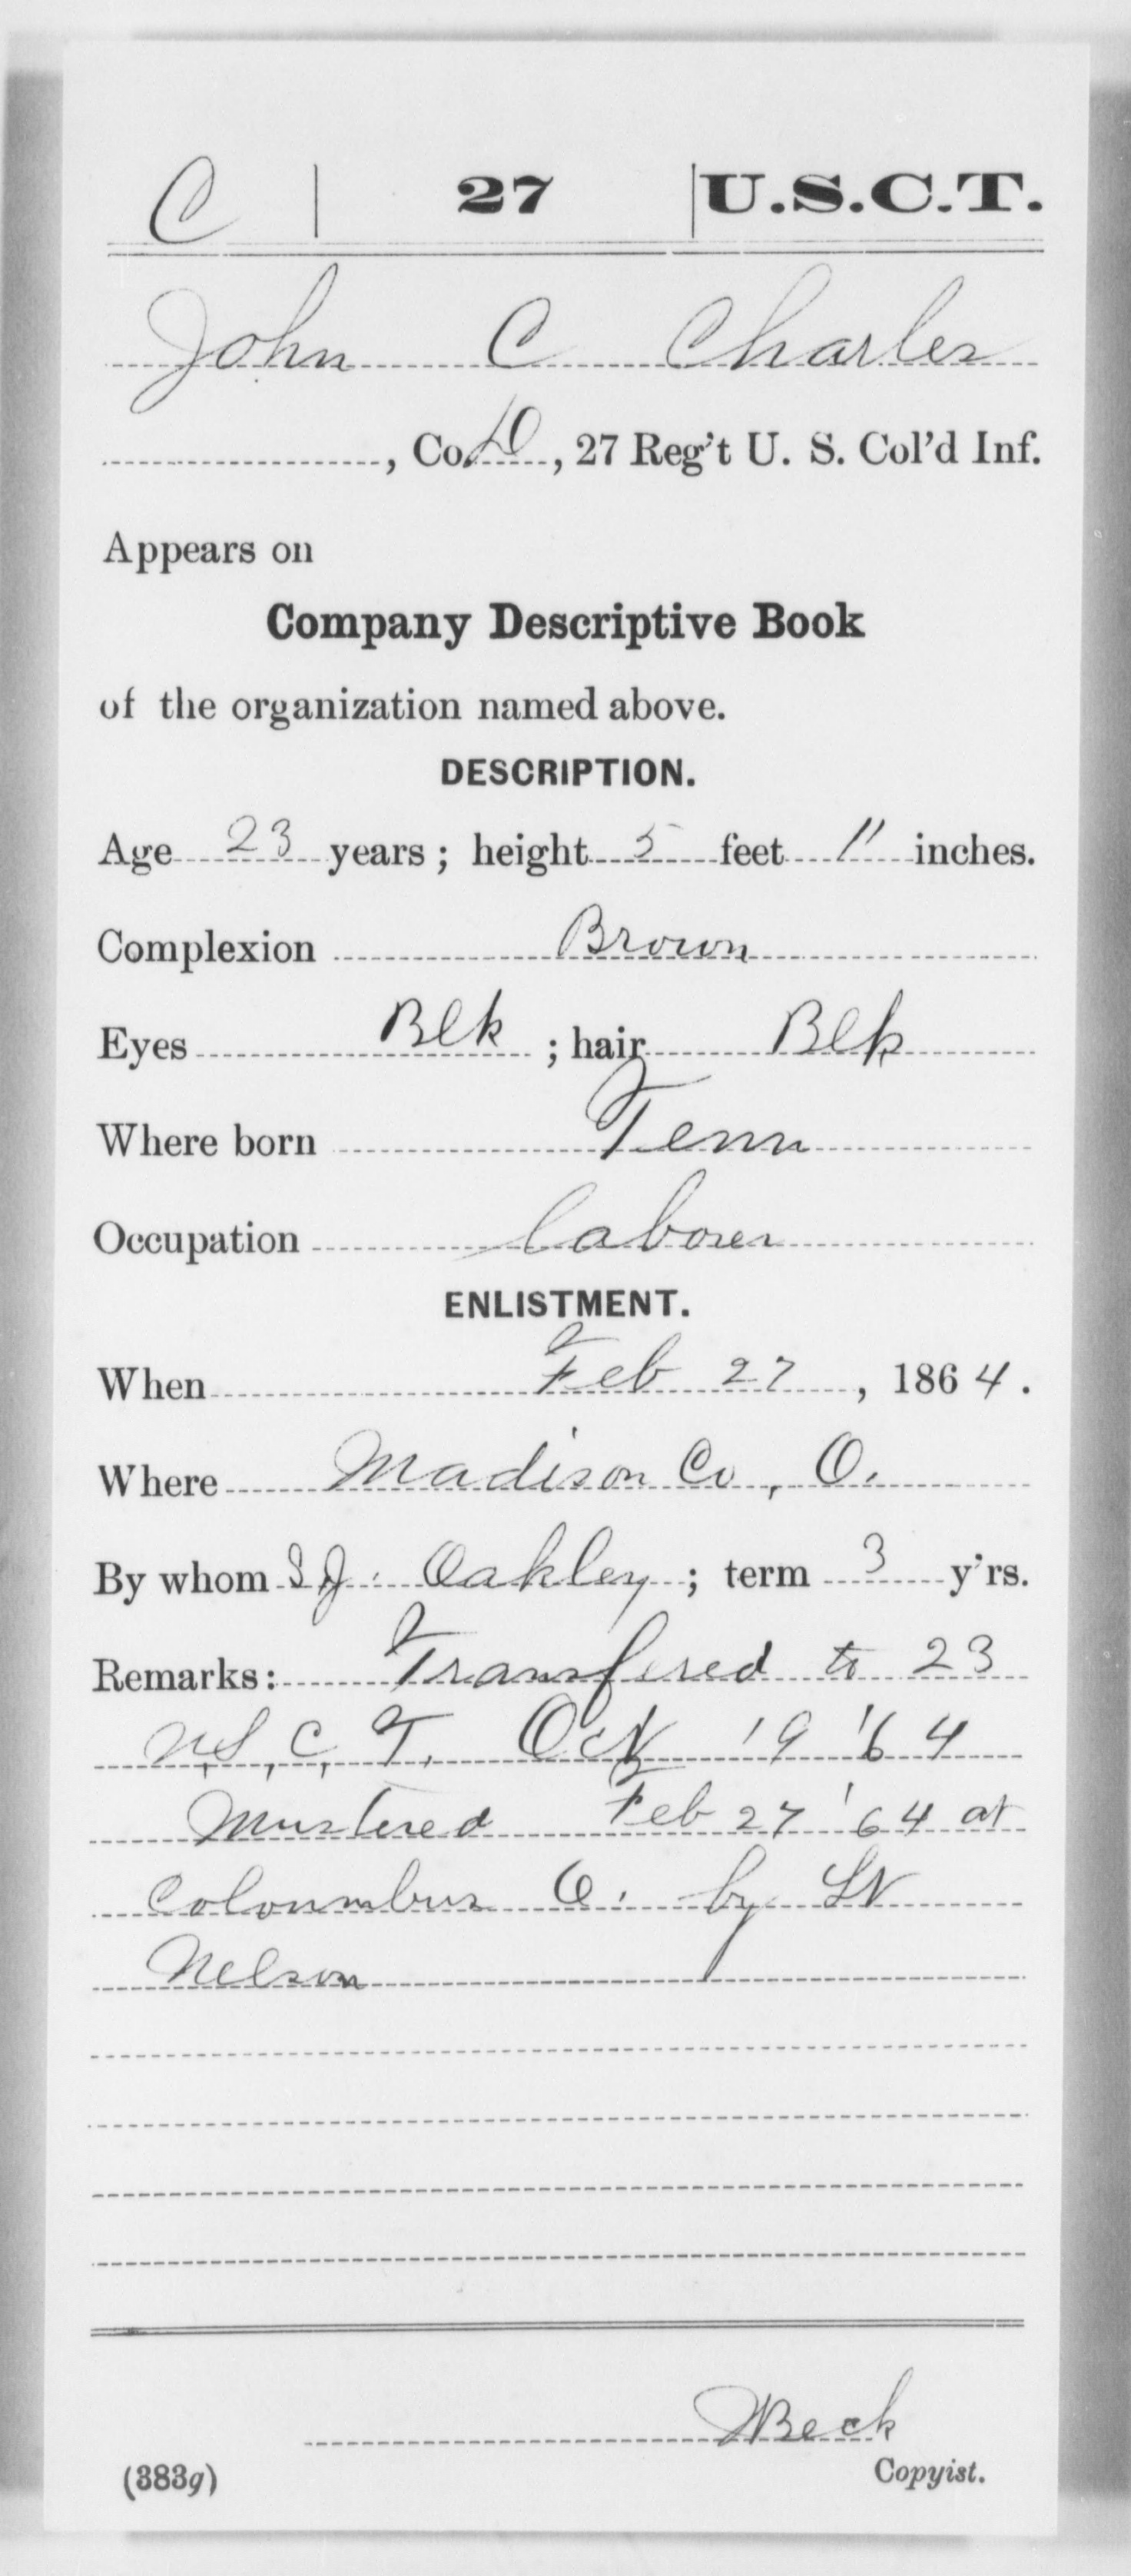 C | 27 | U.S.C.T.
John C Charles
, Co. D, 27 Reg't U. S. Col'd Inf.
Appears on
Company Descriptive Book
of the organization named above.
DESCRIPTION.
Age 23 years; height 5 feet 11 inches.
Complexion Brown
Eyes Blk ; hair Blk
Where born Tenn
Occupation laborer
ENLISTMENT.
When Feb 27, 1864.
Where Madison Co, O.
By whom Oakley; term 3 y'rs.
Remarks: Transfered to 23
U,S, C, T. Oct 19 '64
Mustered Feb 27 '64 at
Coloumbus O. by Lt
Nelson
Beck
(383g) Copyist.